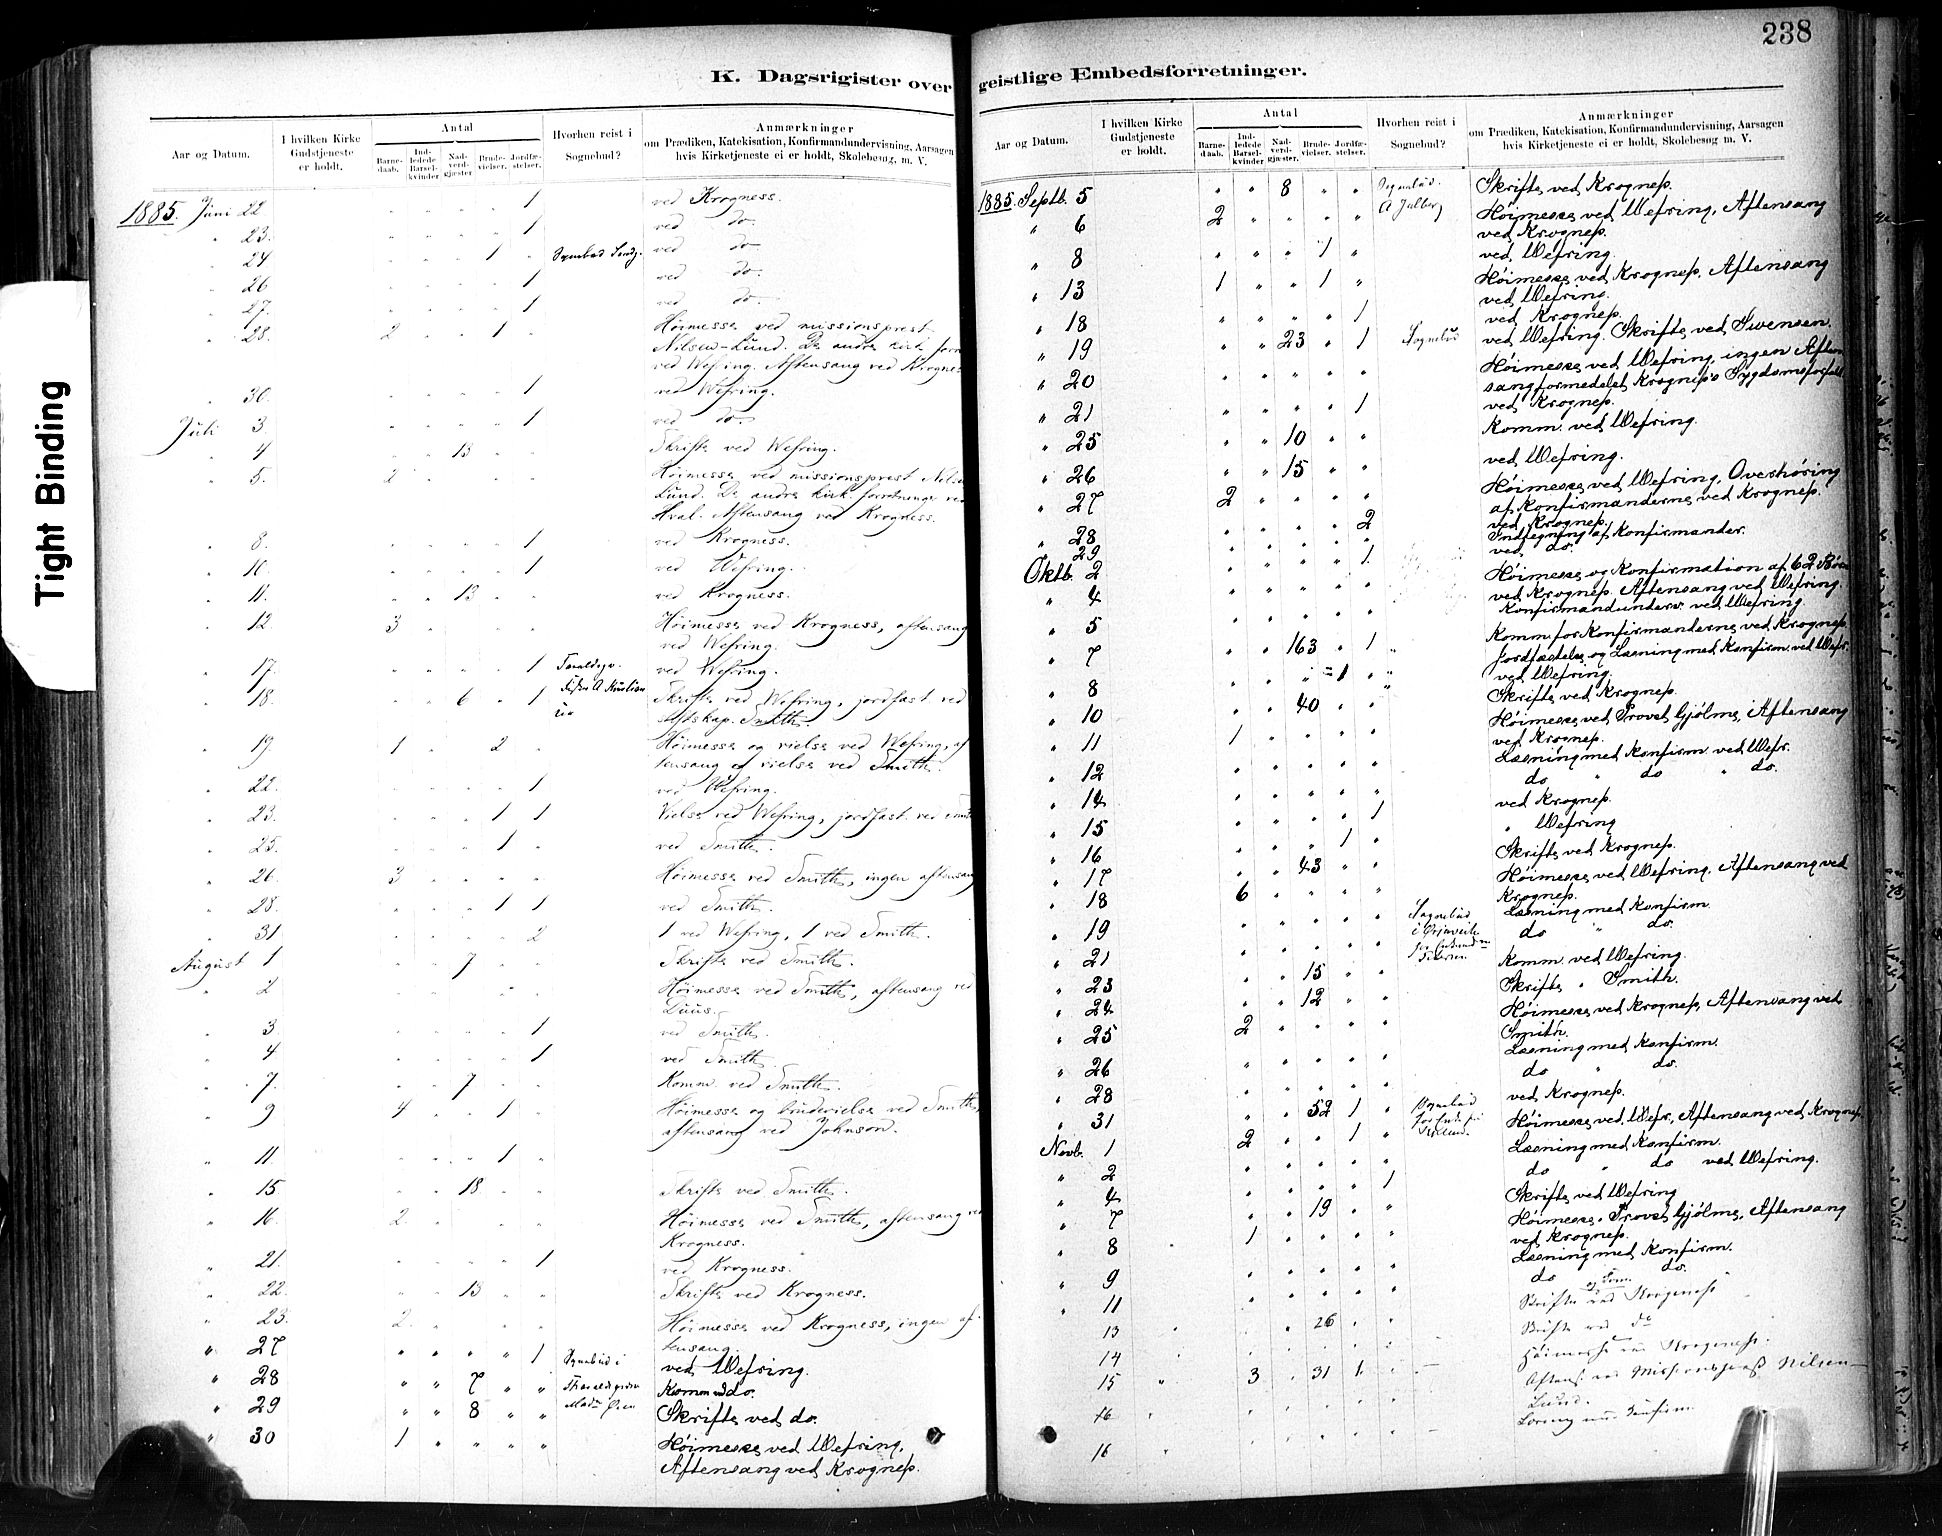 Tight Binding
K. Dagsrigister over
Aar og Datum.
I hvilken Kirke Gudstjeneste er holdt.
Antal
Barne-daab.
Ind-ledede Barsel-kvinder
Nad-verd-gjæster
Brude-vielser.
Jordfæ-stelser.
Hvorhen reist i Sognebud?
Anmærkninger
om Prædiken, Katekisation, Konfirmandundervisning, Aarsagen
hvis Kirketjeneste ei er holdt, Skolebesøg, m. V.
1885. Juni 22 " " " " 1 ved Krogness.
" 23. " " " " 1 ved do
" 24 " " " 1 " Sognebud ved do
" 26 " " " " 1 ved do.
" 27. " " " " 1 ved do.
" 28. 2 " " 1 " Høimesse ved missionsprest
Nilsen-Lund. De andre kirk. forr
ved Wefring. Aftensang ved Krognes
" 30. " " " " 1 ved Wefring.
Juli 3. " " " " 1 ved do
" 4 " " 13 " " Skrifte ved Wefring.
" 5. 2 " " " " Høimesse ved missionsprest Nilsen
Lund. De andre kirk. forretninger ved
Hval. Aftensang ved Krogness.
" 8. " " " " 1 ved Krogness.
" 10. " " " " 1 ved Wefring.
" 11. " " 13 " " ved Krogness.
" 12. 3 " " " " Høimesse ved Krogness, aftensang
ved Wefring.
" 17. " " " " 1 ved Wefring.
" 18. " " 6 " 1 Skrifte ved Wefring, jordfast. ved
Smith.
" 19. 1 " " 2 " Høimesse og vielse ved Wefring, af
tensang og vielse ved Smith.
" 22. " " " " 1 ved Wefring.
" 23. " " " 1 1 Vielse ved Wefring, jordfast. ved Smith
" 25. " " " 1 " ved Smith.
" 26. 3 " " " " Høimesse ved Smith, ingen aftensang
" 28. " " " 1 1 ved Smith.
" 31. " " " " 2 1 ved Wefring, 1 ved Smith.
August 1 " " 7 " " Skrifte ved Smith.
" 2 " " " Høimesse ved Smith, aftensang ved
Duus.
" 3. " " " " 1 ved Smith.
" 4 " " " " 1 ved Smith
" 7. " " 7 " " Komm. ved Smith.
" 9 4 " " 1 " Høimesse og brudevielse ved Smith,
aftensang ved Johnson.
" 11. " " " 1 "
" 15 " " 18 " " Skrifte ved Smith.
" 16. 2 " " Høimesse ved Smith, aftensang ved
Krogness.
" 21. " " " " 1 ved Krogness.
" 22. " " 13 " " Skrifte ved Krogness.
" 23. 2 " " " " Høimesse ved Krogness, ingen af-
tensang.
" 27 " " " " 1 Sognebud i ved Wefring.
" 28 " " 7 " " Komm. ved do.
" 29 " " 8 " " Skrifte ved do.
" 30 1 " " " " Høimesse ved Wefring.
Aftensang ved Krogness.
238
geistlige Embedsforretninger.
Aar og Datum.
I hvilken Kirke Gudstjeneste er holdt.
Antal
Barne-daab.
Ind-ledede Barsel-kvinder
Nad-verd-gjæster.
Brude-vielser.
Jordfæ-stelser.
Hvorhen reist i Sognebud?
Anmærkninger
om Prædiken, Katekisation, Konfirmandundervisning, Aarsagen
hvis Kirketjeneste ei er holdt, Skolebesøg m. V.
1885. Septb. 5 " " 8 " " Sognebud. Skrifte ved Krogness.
" 6 2 " " " " Høimesse ved Wefring, Aftensang
ved Krogness.
" 8 " " " 1 " ved Wefring.
" 13 1 " " 1 " Høimesse ved Krogness, Aftensang
ved Wefring.
" 18 " " " " 1 ved Krogness.
" 19 " " 23 " 1 Sognebud ved Wefring. Skrifte ved Svensen.
" 20 " " " " " Høimesse ved Wefring, ingen Aften
sang formedelst Krogness's Sygdomsforfald.
" 21 " " " " 1 ved Krogness.
" 25 " " 10 " " Komm. ved Wefring.
" 26 " " 15 " " ved Wefring.
" 27 2 " " " " Høimesse ved Wefring, Overhøring
af Konfirmanderne ved Krogness.
" 28 " " " " 2 ved Krogness.
29 " " " " " Indtegning af Konfirmander.
Oktb. 2 " " " " 1 ved do.
" 4 " " " " " Høimesse og Konfirmation af 62 Børn
ved Krogness. Aftensang ved Wefring.
" 5 " " " " " Konfirmandunderv. ved Wefring.
" 7 " " 163 " 1 Komm. for Konfirmanderne ved Krogness
Jordfæstelse og Læsning med Konfirm. ved Wefr.
" 8 " " " 1 " ved Wefring.
" 10 " " 40 " " Skrifte ved Krogness.
" 11 1 " " " " Høimesse ved Provst Gjølme, Aftensang
ved Krogness.
" 12 " " " " " Læsning med Konfirm. ved Wefr.
" 14 " " " " " do " do " do.
" 15 " " " " 1 ved Krogness.
" 16 " " " 1 " " Wefring
" 17 " " 43 " " Skrifte ved Krogness.
" 18 6 " " " " Høimesse ved Wefring, Aftensang ved
Krogness.
" 19 " " " " " Sognebud Læsning med Konfirm.
" 21 " " " " " do " do.
" 23 " " 15 " " Komm. ved Wefring.
" 24 " " 12 " " Skrifte " Smith.
" 25 2 " " " " Høimesse ved Krogness, Aftensang ved
Smith.
" 26 " " " " " Læsning med Konfirm.
" 28 " " " " " do " do.
" 31 " " 52 1 " Sognebud ved Krogness.
Novb. 1 2 " " 1 " Høimesse ved Wefr., Aftensang ved Krogness.
" 2 " " " " " Læsning med Konfirm.
" 4 " " " " 1 do " do ved Wefring.
" 7 " " 19 " " Skrifte ved Wefring
" 8 1 " " " " Høimesse. Provst Gjølme, Aftensang
ved Krogness.
" 9 " " " " " Læsning med Konfirm.
" 11 " " " " " do do.
13 " " 26 " " Skrifte og Kom. ved Krogness
14 " " " " " Skrifte ved do
15 3 " 31 1 " Høimesse ved Krogness.
Aftens. ved Missionsprest Nilsen-
Lund.
16 " " " " " Læsning med Konfirm.
16 " " " " "